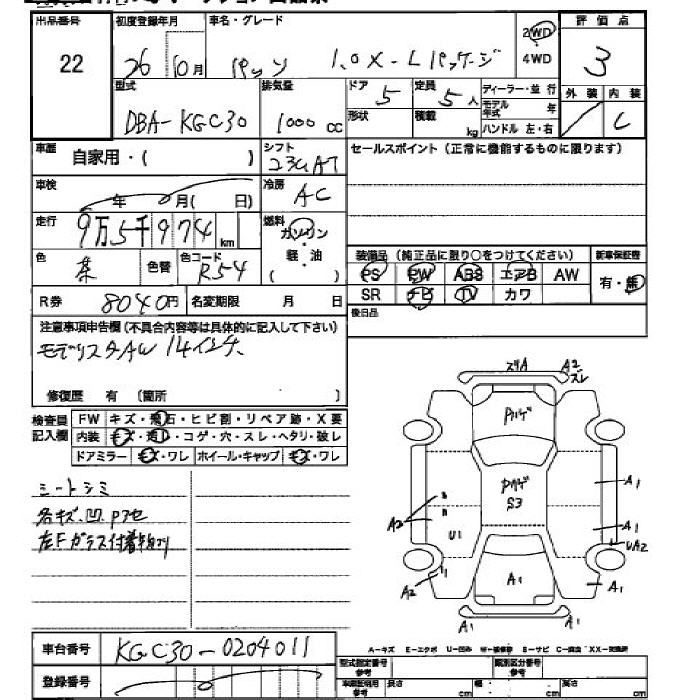 出品番号 初度登録年月 車名・グレード 2WD 評価点
22 26 10月 パッソ 1.0X-Lパッケージ 4WD 3
型式 排気量 ドア 5 定員 5人 ディーラー・並行 外装 内装
DBA-KGC30 1000cc 形状 積載 kg モデル年式 年 C
ハンドル 左・右
車歴 自家用・( ) シフト セールスポイント(正常に機能するものに限ります)
車検 年 月( 日) 冷房 AC
走行 9万5千974km 燃料 ガソリン
軽・油
( )
色 色替 色コード R54 装備品(純正品に限り○をつけてください) 新車保証書
PS PW ABS エアB AW 有・無
R券 8040円 名変期限 月 日 SR ナビ TV カワ
後日品
注意事項申告欄(不具合内容等は具体的に記入して下さい)
モデリスタAW 14インチ
修復歴 有 〔箇所 〕
検査員記入欄 FW キズ・飛石・ヒビ割・リペア跡・X要
内装 キズ・汚レ・コゲ・穴・スレ・ヘタリ・破レ
ドアミラー キズ・ワレ ホイール・キャップ キズ・ワレ
シートシミ
各キズ.凹.Pアセ
左Fガラス付着物アリ
ズリA A2
スレ
Pハゲ
Pハゲ
S3
A2 U1 A1
A1
UA2
A2 A1 A1
A1 A1
車台番号 KGC30-0204011
A-キズ E-エクボ U-凹み W-補修跡 S-サビ C-腐食 XX-交換済
登録番号 型式指定番号 参考 類別区分番号 参考
車両証明用 参考 長さ cm 幅 cm 高さ cm